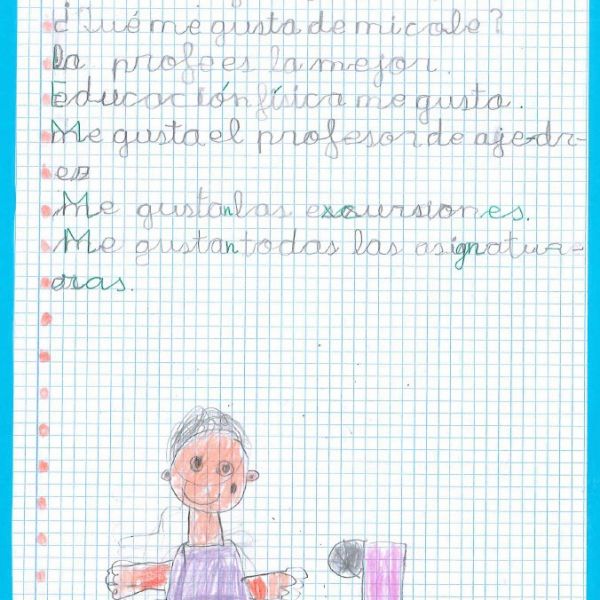 ¿Qué me gusta de mi cole?
La profe es la mejor.
Educación física me gusta.
Me gusta el profesor de ajedr-
ez
Me gustan las excursiones.
Me gustan todas las asignatur-
ras.